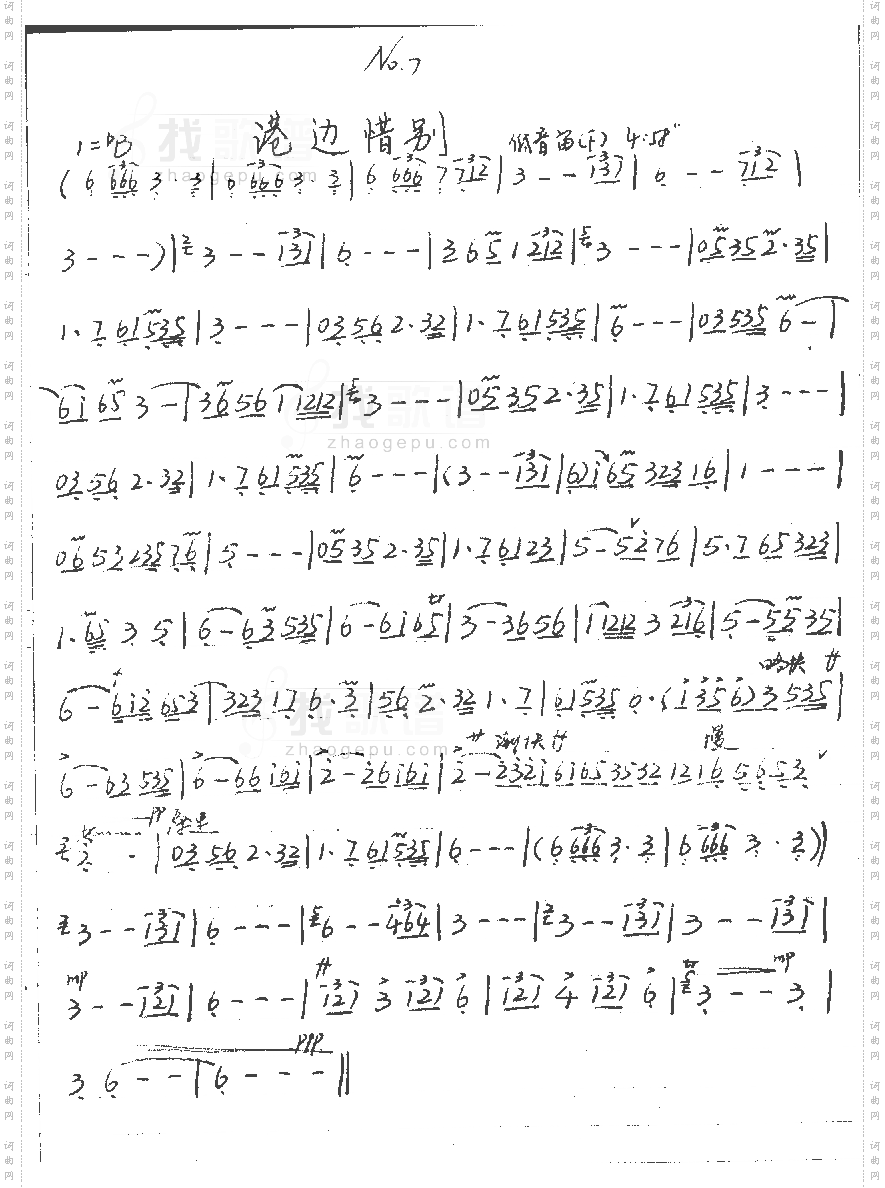 No.7
港边惜别
1=♭B 低音笛(F) 4'58"
(6 666 3·3|6 666 3·3|6 666 7 712|3--131|6--712|
3---)|3--131|6---|3 6 5 1 212|3---|05352·35|
1·761535|3---|03562·32|1·761535|6---|035356-|
6i653-|365611212|3---|05352·35|1·761535|3---|
03562·32|1·761535|6---|(3--131|6)i6532316|1---|
0653223576|5---|05352·35|1·76123|5-5276|5·765323|
1·6535|6-63535|6-6i65|3-3656|1 1212 3 216|5-5535|
略快
6-6i2653|323176·3|562·321·7|61535 6·(i356)3535|
渐快 慢
6-63535|6-66i6i|2-26i6i|2-232i6i65353212165653
pp
3-|03562·32|1·761535|6---|(6 666 3·3|6 666 3·3)||
3--131|6---|6--464|3---|3--131|3--131|
mp mp
3--121|6---|121 3 121 6|121 4 121 6|3--3|
ppp
3 6--|6---||
找歌谱
zhaogepu.com
词曲网